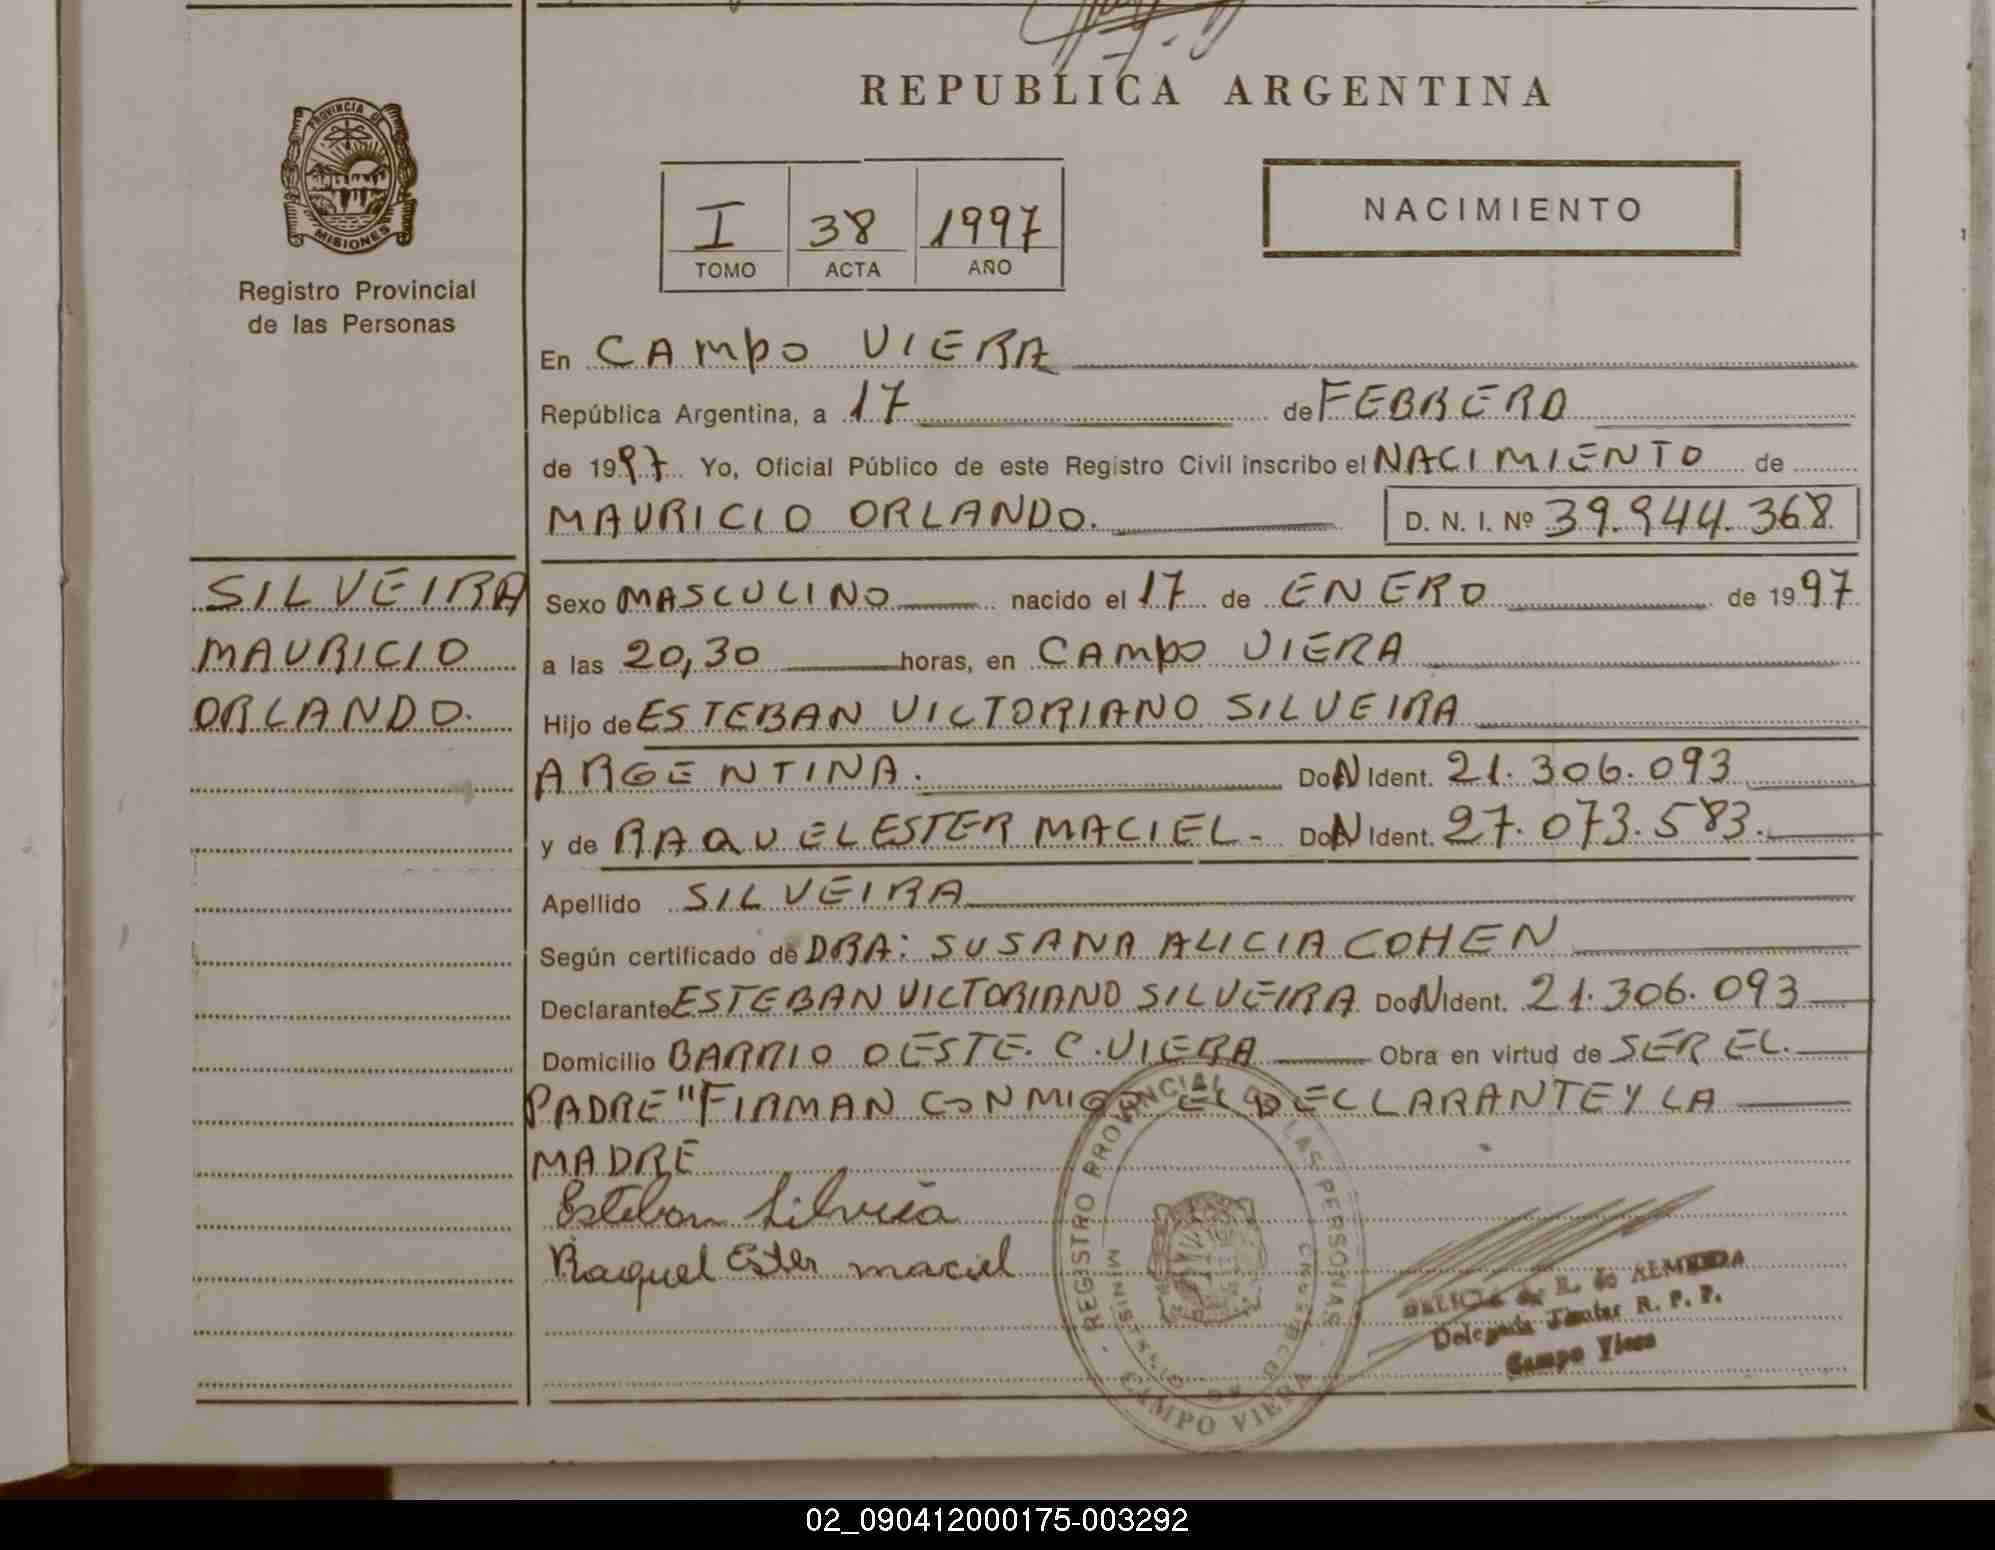 REPUBLICA ARGENTINA
PROVINCIA DE
MISIONES
Registro Provincial
de las Personas
I 38 1997
TOMO ACTA AÑO
NACIMIENTO
En CAMPO VIERA
República Argentina, a 17 de FEBRERO
de 1997 Yo, Oficial Público de este Registro Civil inscribo el NACIMIENTO de
MAURICIO ORLANDO. D. N. I. Nº 39.944.368
SILVEIRA
MAURICIO
ORLANDO.
Sexo MASCULINO nacido el 17 de ENERO de 1997
a las 20,30 horas, en CAMPO VIERA
Hijo de ESTEBAN VICTORIANO SILVEIRA
ARGENTINA. DoN Ident. 21.306.093
y de RAQUEL ESTER MACIEL- DoN Ident. 27.073.583.
Apellido SILVEIRA
Según certificado de DRA: SUSANA ALICIA COHEN
Declarante ESTEBAN VICTORIANO SILVEIRA DoN Ident. 21.306.093
Domicilio BARRIO OESTE. C.VIERA Obra en virtud de SER EL.
PADRE "FIRMAN CONMIGO EL DECLARANTE Y LA
MADRE
Esteban Silveira
Raquel Ester maciel
REGISTRO PROVINCIAL DE LAS PERSONAS
CAMPO VIERA
R. de ALMEIDA
Delegada Titular R. P. P.
Campo Viera
02_090412000175-003292